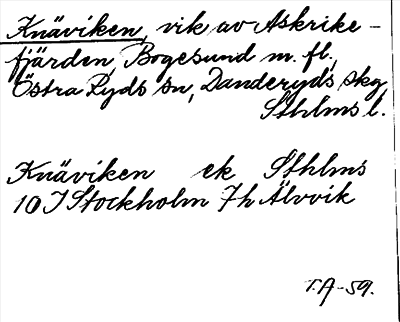 Knäviken, vik av Askrike-
fjärden, Bogesund m. fl.,
Östra Ryds sn, Danderyds skg,
Sthlms l.
Knäviken ek Sthlms
10 I Stockholm 7h Älvvik
T.A-59.